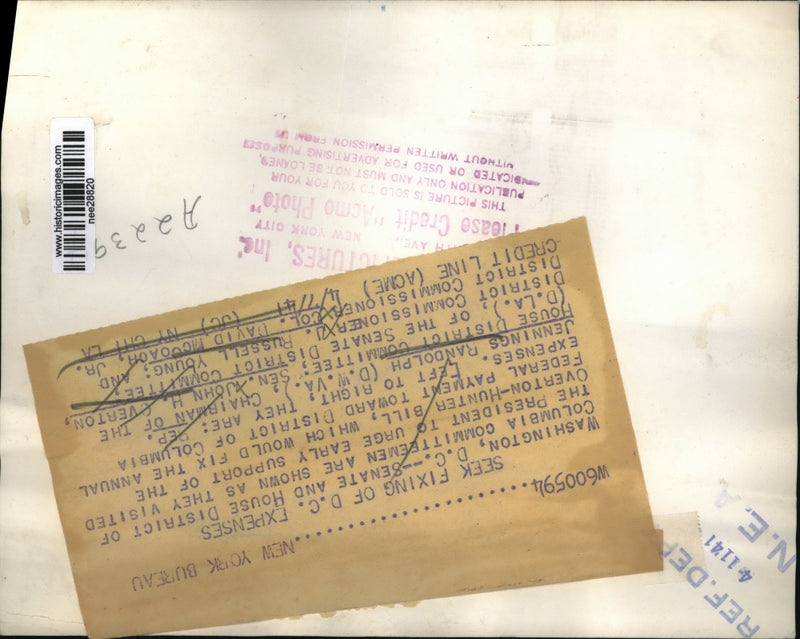 www.historicimages.com
nee28820
A2239
PICTURES, Inc.
TH AVE., NEW YORK CITY
Please Credit "Acme Photo"
THIS PICTURE IS SOLD TO YOU FOR YOUR
PUBLICATION ONLY AND MUST NOT BE LOANED,
SYNDICATED OR USED FOR ADVERTISING PURPOSES
WITHOUT WRITTEN PERMISSION FROM US
W600594..............................NEW YORK BUREAU
SEEK FIXING OF D.C. EXPENSES
WASHINGTON, D.C.--SENATE AND HOUSE DISTRICT OF
COLUMBIA COMMITTEEMEN ARE SHOWN AS THEY VISITED
THE PRESIDENT TO URGE EARLY SUPPORT OF THE
OVERTON-HUNTER BILL, WHICH WOULD FIX THE ANNUAL
FEDERAL PAYMENT TOWARD DISTRICT OF COLUMBIA
EXPENSES. LEFT TO RIGHT, THEY ARE: REP.
JENNINGS RANDOLPH (D. W. VA.), CHAIRMAN OF THE
HOUSE DISTRICT COMMITTEE; SEN. JOHN H. OVERTON,
(D.LA.) OF THE SENATE DISTRICT COMMITTEE;
DISTRICT COMMISSIONER, J. RUSSELL YOUNG; AND
DISTRICT COMMISSIONER COL. DAVID MCCOACH, JR.
CREDIT LINE (ACME) 4/7/41 (JC) NY CHI LA
N.E.A.
4-11-41
REF. DEP